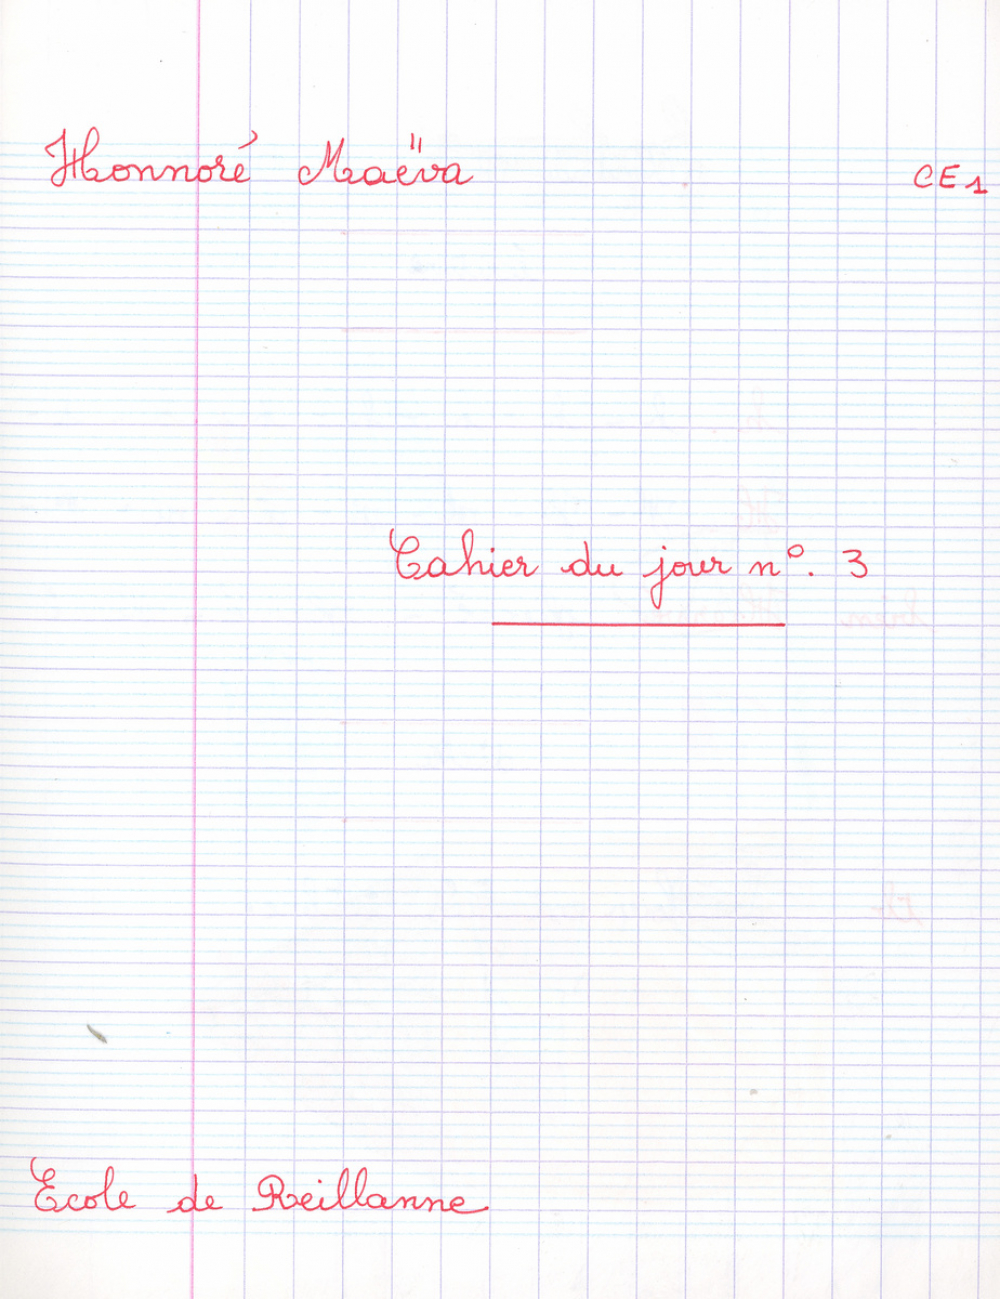 Honnoré Maëva
CE1
Cahier du jour n°. 3
Ecole de Reillanne